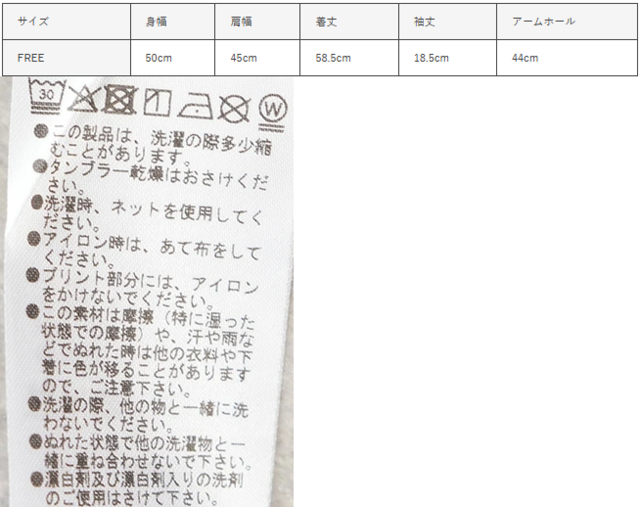 サイズ 身幅 肩幅 着丈 袖丈 アームホール
FREE 50cm 45cm 58.5cm 18.5cm 44cm
30 W
●この製品は、洗濯の際多少縮
むことがあります。
●タンブラー乾燥はおさけくだ
さい。
●洗濯時、ネットを使用してく
ださい。
●アイロン時は、あて布をして
ください。
●プリント部分には、アイロン
をかけないでください。
●この素材は摩擦（特に湿った
状態での摩擦）や、汗や雨な
どでぬれた時は他の衣料や下
着に色が移ることがあります
ので、ご注意下さい。
●洗濯の際、他の物と一緒に洗
わないでください。
●ぬれた状態で他の洗濯物と一
緒に重ね合わせないで下さい。
●漂白剤及び漂白剤入りの洗剤
のご使用はさけて下さい。